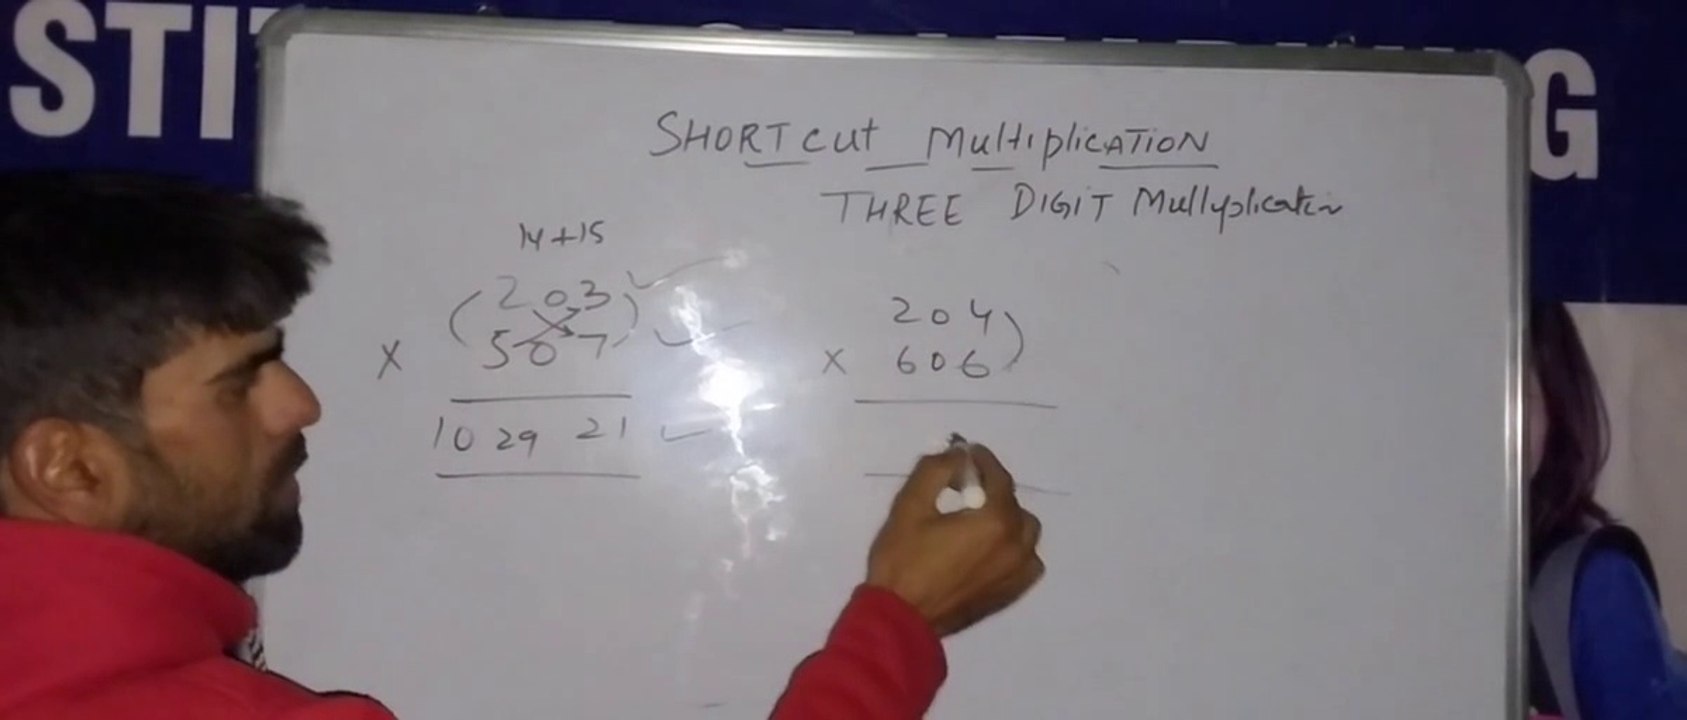 STI
G
SHORTcut Multiplication
THREE DIGIT Mullyplication
14+15
(203)
× 507
10 29 21
204)
× 606